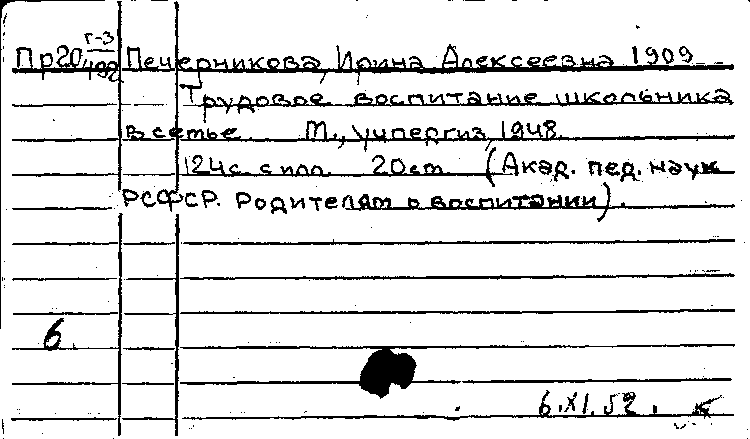 Пр20 Г-3/492 Печерникова, Ирина Алексеевна 1909
Трудовое воспитание школьника
в семье. М., Учпедгиз, 1948.
124с. с илл. 20см (Акад. пед. наук
РСФСР. Родителям о воспитании).
6.
6.XI.52.